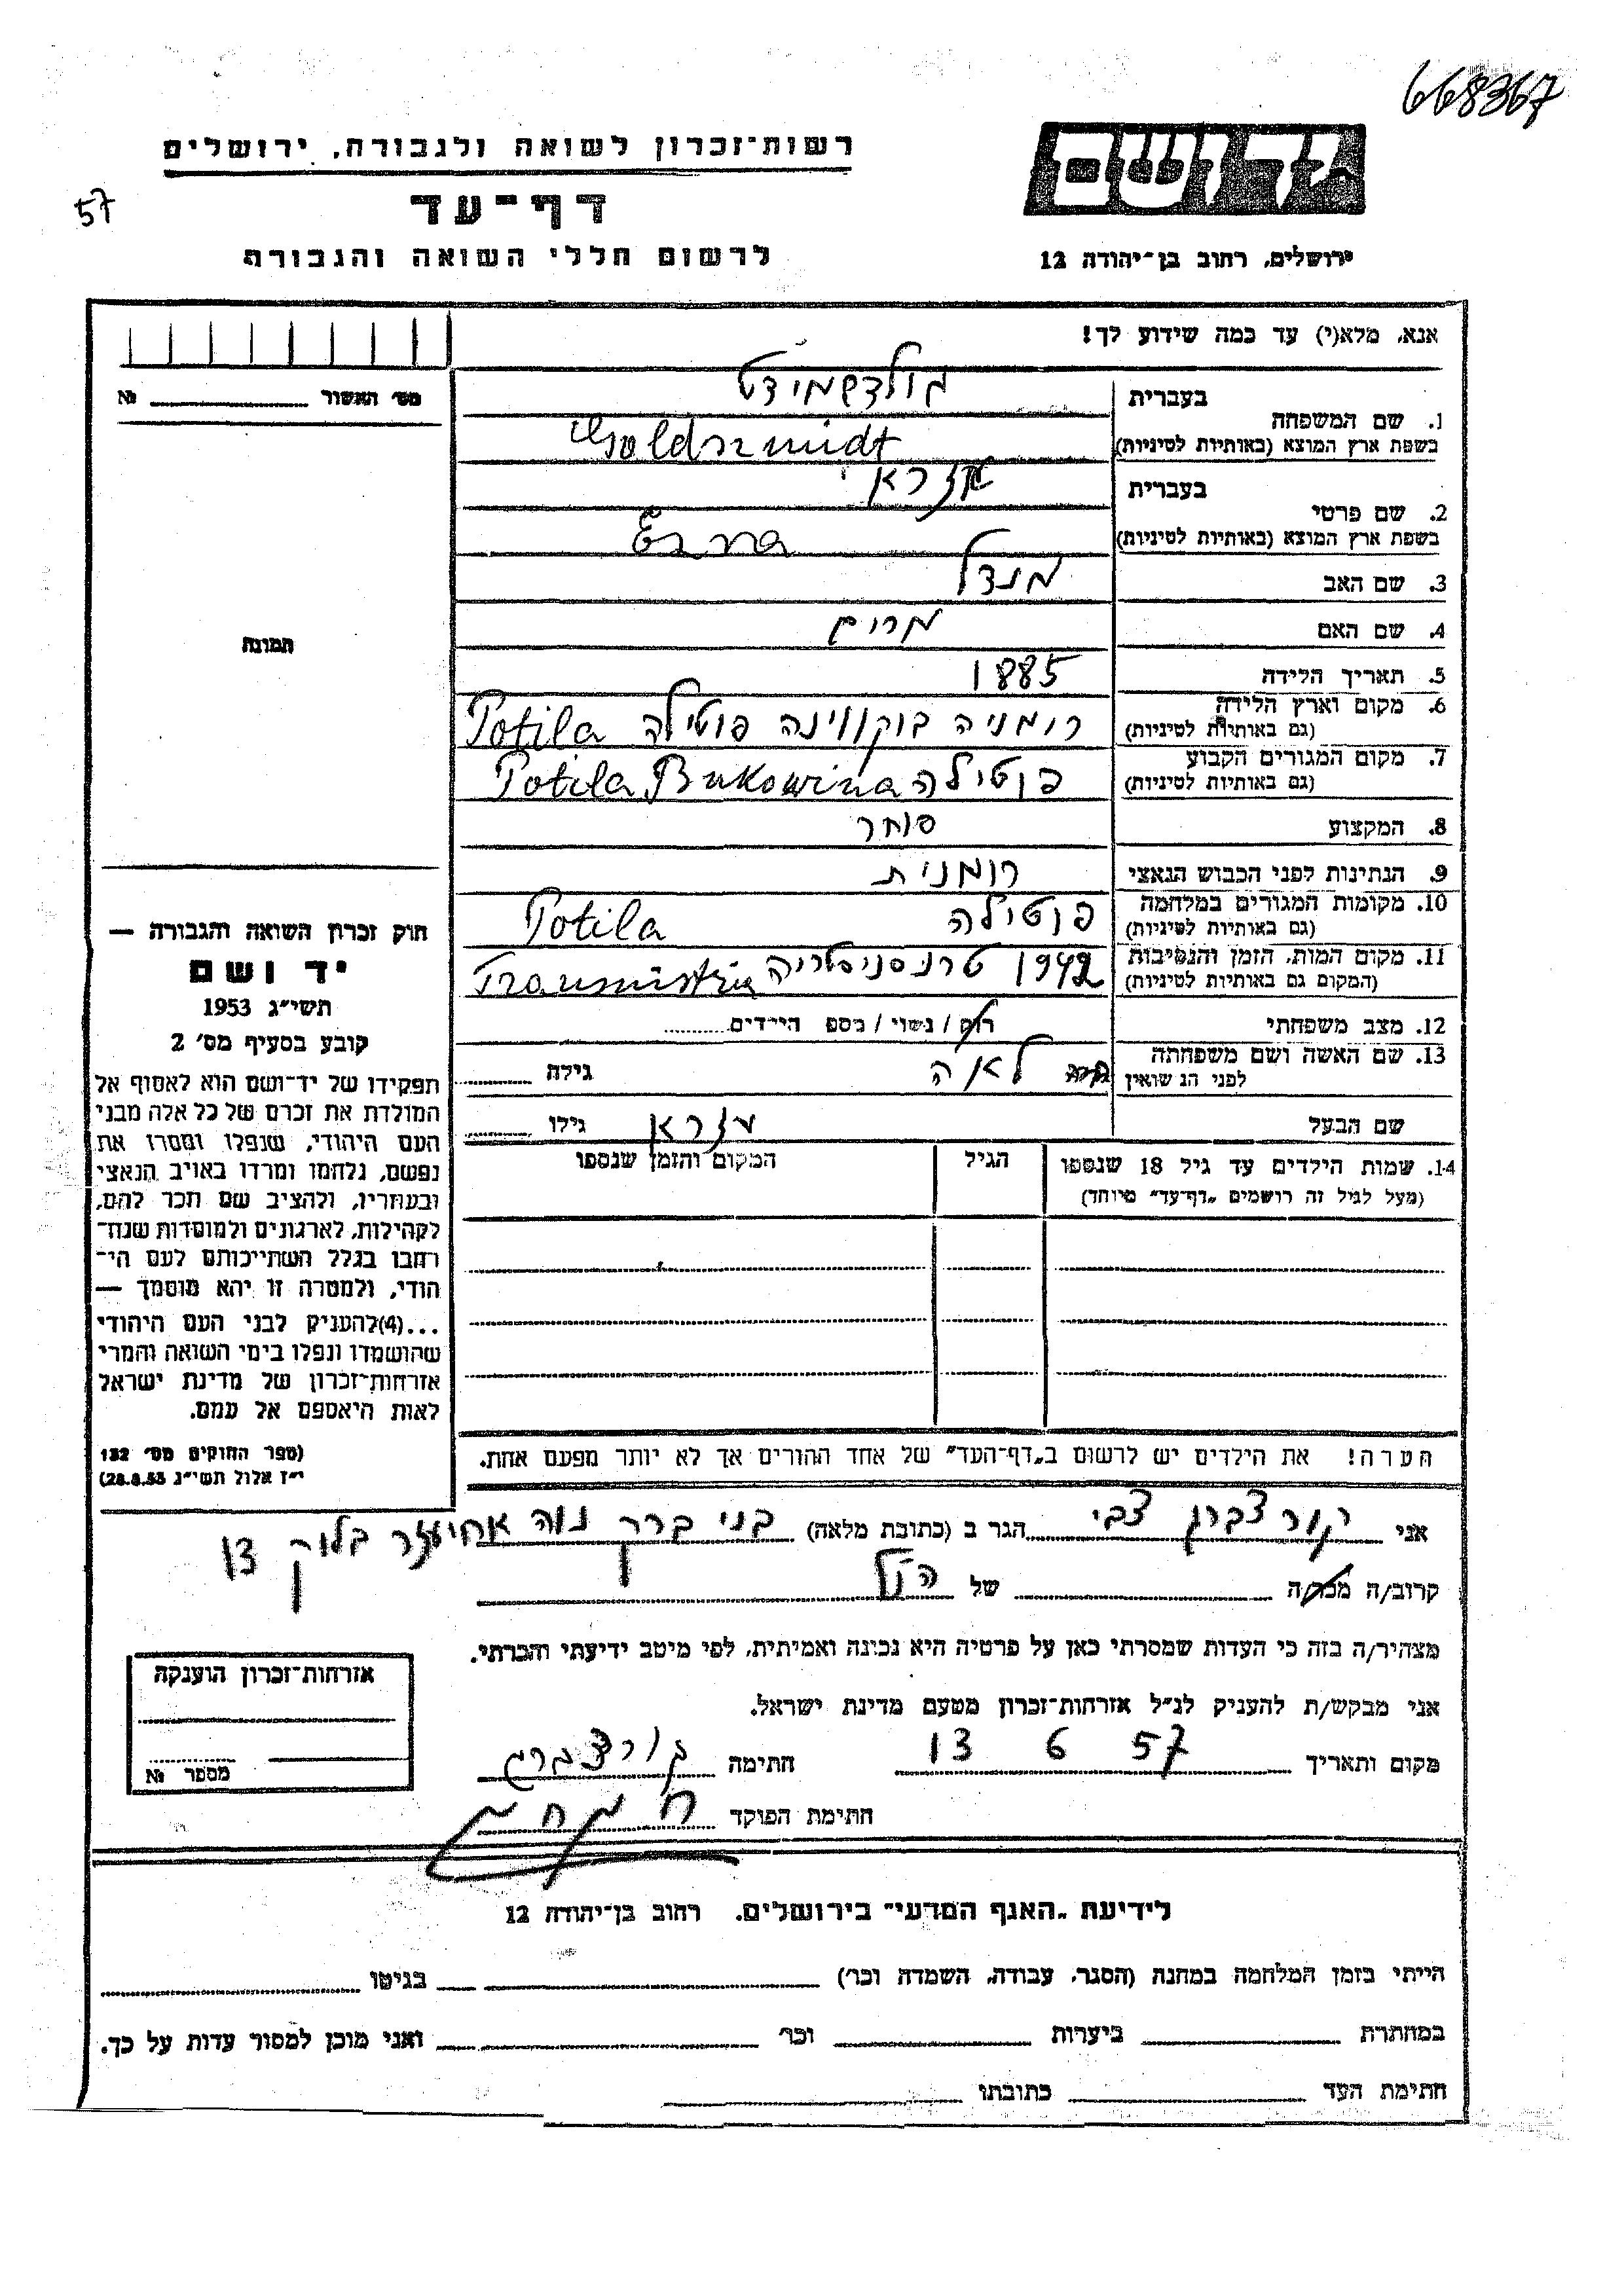 668367
רשות־זכרון לשואה ולגבורה, ירושלים
57
דף־עד
לרשום חללי השואה והגבורה
יד ושם
ירושלים, רחוב בן־יהודה 12
אנא, מלא(י) עד כמה שידוע לך!
מס׳ האשור № 
1. שם המשפחה בעברית גולדשמידט
בשפת ארץ המוצא (באותיות לטיניות) Goldszmidt
2. שם פרטי בעברית עזרא
בשפת ארץ המוצא (באותיות לטיניות) Esra
3. שם האב מנדל
4. שם האם מרים
5. תאריך הלידה 1885
6. מקום וארץ הלידה (גם באותיות לטיניות) רומניה בוקווינה פוטילה Potila
7. מקום המגורים הקבוע (גם באותיות לטיניות) פוטילה Potila Bukowina
8. המקצוע סוחר
9. הנתינות לפני הכבוש הנאצי רומנית
10. מקומות המגורים במלחמה (גם באותיות לטיניות) פוטילה Potila
11. מקום המות, הזמן והנסיבות (המקום גם באותיות לטיניות) 1942 טרנסניסטריה Transnistria
12. מצב משפחתי רוק / נשוי / מספ הילדים
13. שם האשה ושם משפחתה לפני הנישואין לאה גילה
שם הבעל עזרא גילו
14. שמות הילדים עד גיל 18 שנספו הגיל המקום והזמן שנספו
(מעל לגיל זה רושמים „דף־עד״ מיוחד)
הערה! את הילדים יש לרשום ב„דף־העד״ של אחד ההורים אך לא יותר מפעם אחת.
תמונה
חוק זכרון השואה והגבורה —
יד ושם
תשי״ג 1953
קובע בסעיף מס׳ 2
תפקידו של יד־ושם הוא לאסוף אל
המולדת את זכרם של כל אלה מבני
העם היהודי, שנפלו ומסרו את
נפשם, נלחמו ומרדו באויב הנאצי
ובעוזריו, ולהציב שם וזכר להם,
לקהילות, לארגונים ולמוסדות שנח־
רבו בגלל השתייכותם לעם הי־
הודי, ולמטרה זו יהא מוסמך —
...(4)להעניק לבני העם היהודי
שהושמדו ונפלו בימי השואה והמרי
אזרחות־זכרון של מדינת ישראל
לאות היאספם אל עמם.
(ספר החוקים מס׳ 132
י״ז אלול תשי״ג 28.8.53)
אני קורצברג צבי הגר ב (כתובת מלאה) בני ברק נוה אחיעזר בלוק
קרוב/ה מכר/ה של הנ״ל
מצהיר/ה בזה כי העדות שמסרתי כאן על פרטיה היא נכונה ואמיתית, לפי מיטב ידיעתי והכרתי.
אני מבקש/ת להעניק לנ״ל אזרחות־זכרון מטעם מדינת ישראל.
מקום ותאריך 13 6 57 חתימה קורצברג
חתימת הפוקד
אזרחות־זכרון הוענקה
מספר №
לידיעת „האגף המדעי״ בירושלים, רחוב בן־יהודה 12
הייתי בזמן המלחמה במחנה (הסגר, עבודה, השמדה וכו׳) בגיטו
במחתרת ביערות וכו׳ ואני מוכן למסור עדות על כך.
חתימת העד כתובתו